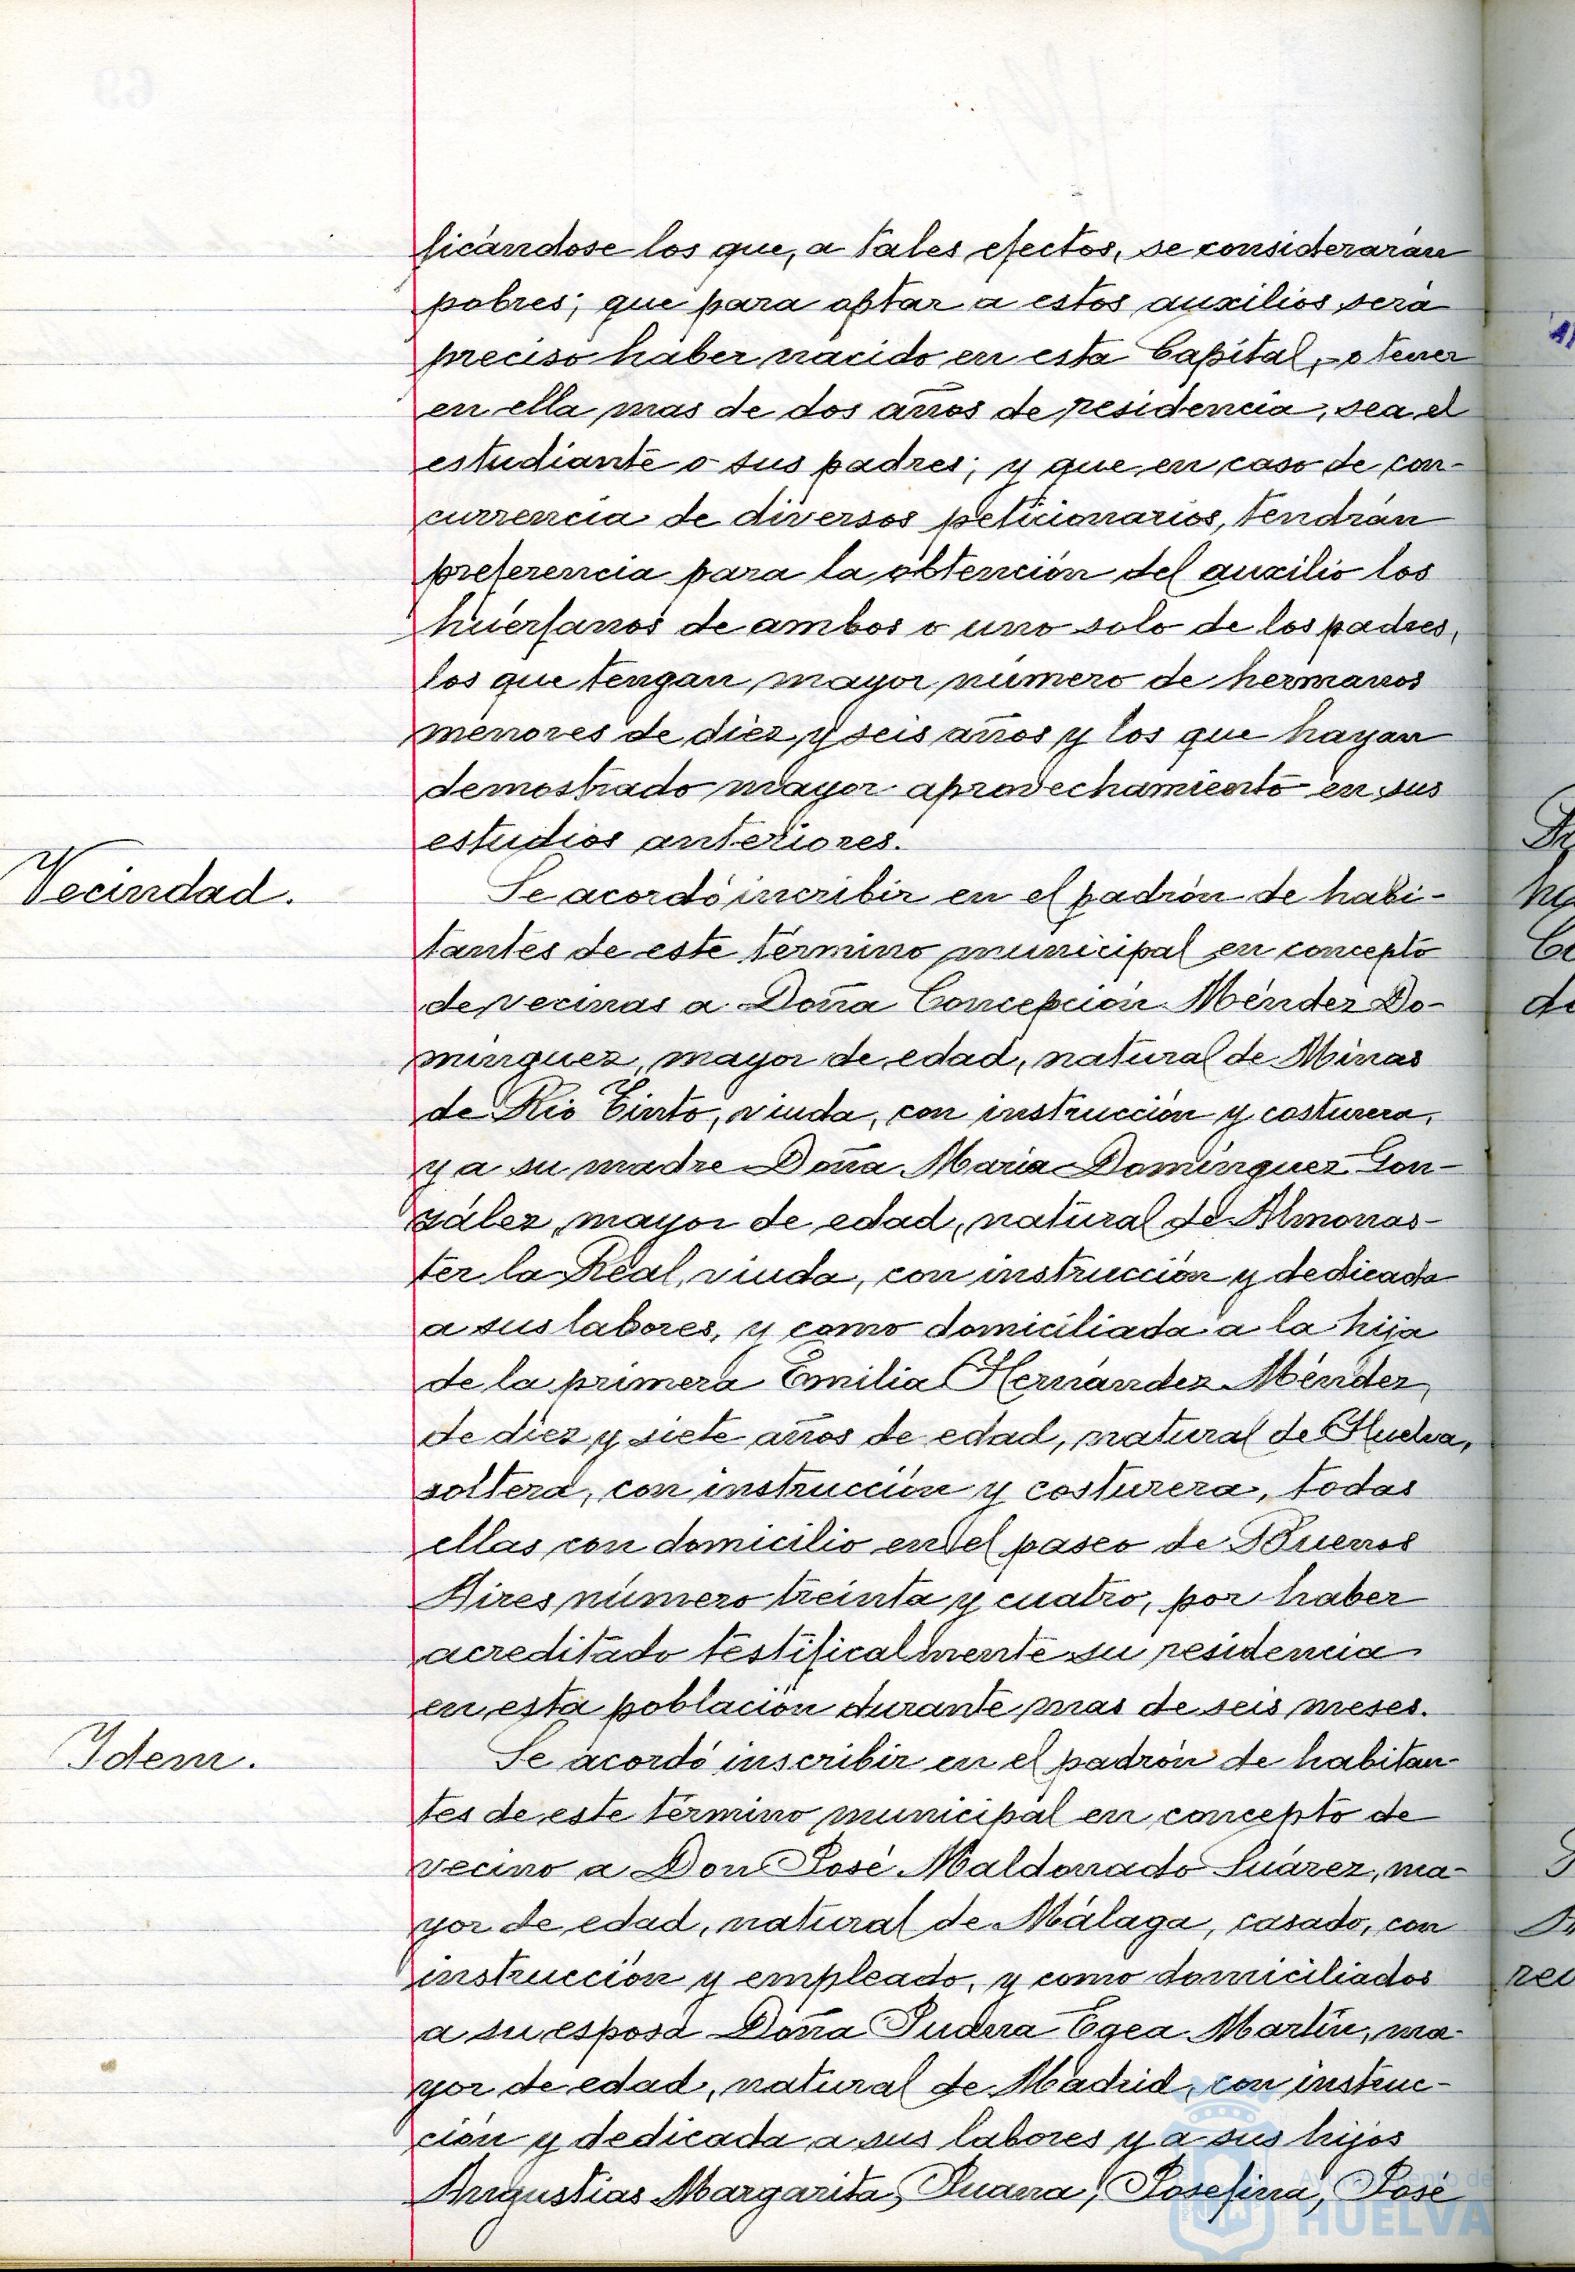 ficándose los que, a tales efectos, se considerarán
pobres; que para optar a estos auxilios será
preciso haber nacido en esta Capital, o tener
en ella mas de dos años de residencia, sea el
estudiante o sus padres; y que en caso de con-
currencia de diversos peticionarios, tendrán
preferencia para la obtención del auxilio los
huérfanos de ambos o uno solo de los padres,
los que tengan mayor número de hermanos
menores de diez y seis años y los que hayan
demostrado mayor aprovechamiento en sus
estudios anteriores.
Vecindad.
Se acordó incribir en el padrón de habi-
tantes de este término municipal en concepto
de vecinas a Doña Concepción Méndez Do-
minguez, mayor de edad, natural de Minas
de Rio Tinto, viuda, con instrucción y costurera,
y a su madre Doña Maria Domínguez Gon-
zález, mayor de edad, natural de Almonas-
ter la Real, viuda, con instrucción y dedicada
a sus labores, y como domiciliada a la hija
de la primera Emilia Hernández Méndez,
de diez y siete años de edad, natural de Huelva,
soltera, con instrucción y costurera, todas
ellas con domicilio en el paseo de Buenos
Aires número treinta y cuatro, por haber
acreditado testificalmente su residencia
en esta población durante mas de seis meses.
Idem.
Se acordó inscribir en el padrón de habitan-
tes de este término municipal en concepto de
vecino a Don José Maldonado Suárez, ma-
yor de edad, natural de Málaga, casado, con
instrucción y empleado, y como domiciliados
a su esposa Doña Egea Martín, ma-
yor de edad, natural de Madrid, con instruc-
ción y dedicada a sus labores y a sus hijos
Angustias Margarita, Juana, Josefina, José
Ayuntamiento de
HUELVA